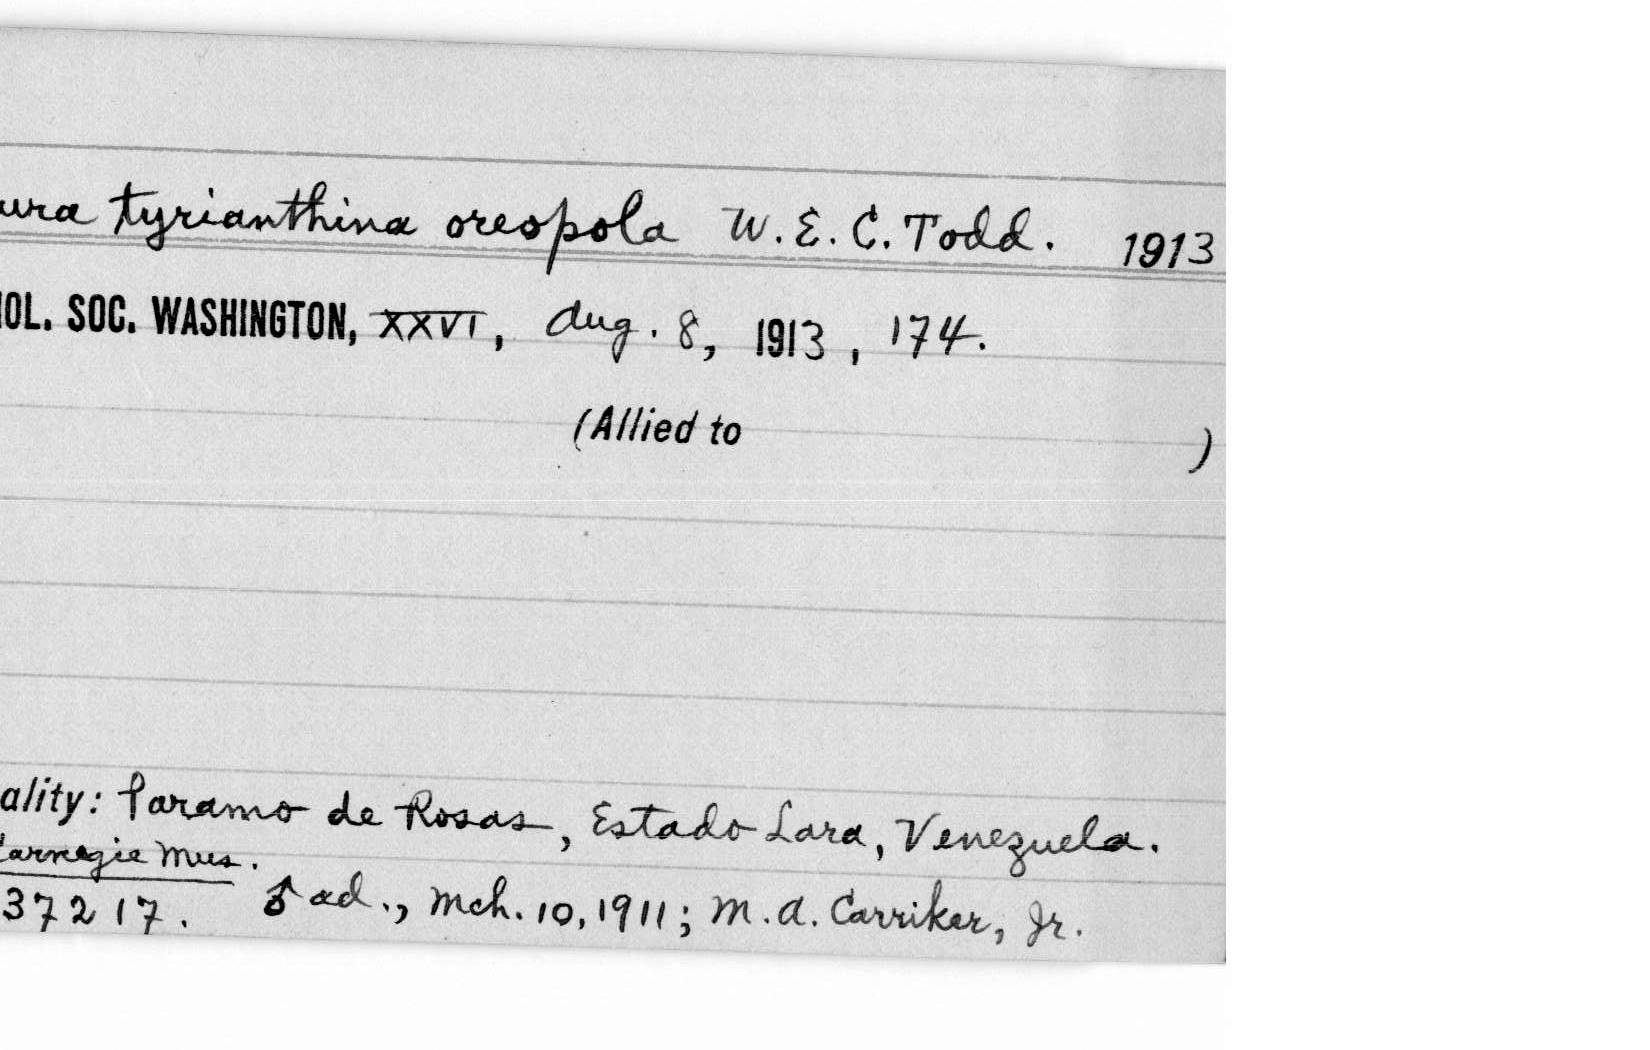 ura tyrianthina oreopola W. E. C. Todd. 1913
IOL. SOC. WASHINGTON, XXVI, Aug. 8, 1913, 174.
(Allied to )
ality: Paramo de Rosas, Estado Lara, Venezuela.
Carnegie Mus.
37217. ♂ ad., Mch. 10, 1911; M. A. Carriker, Jr.